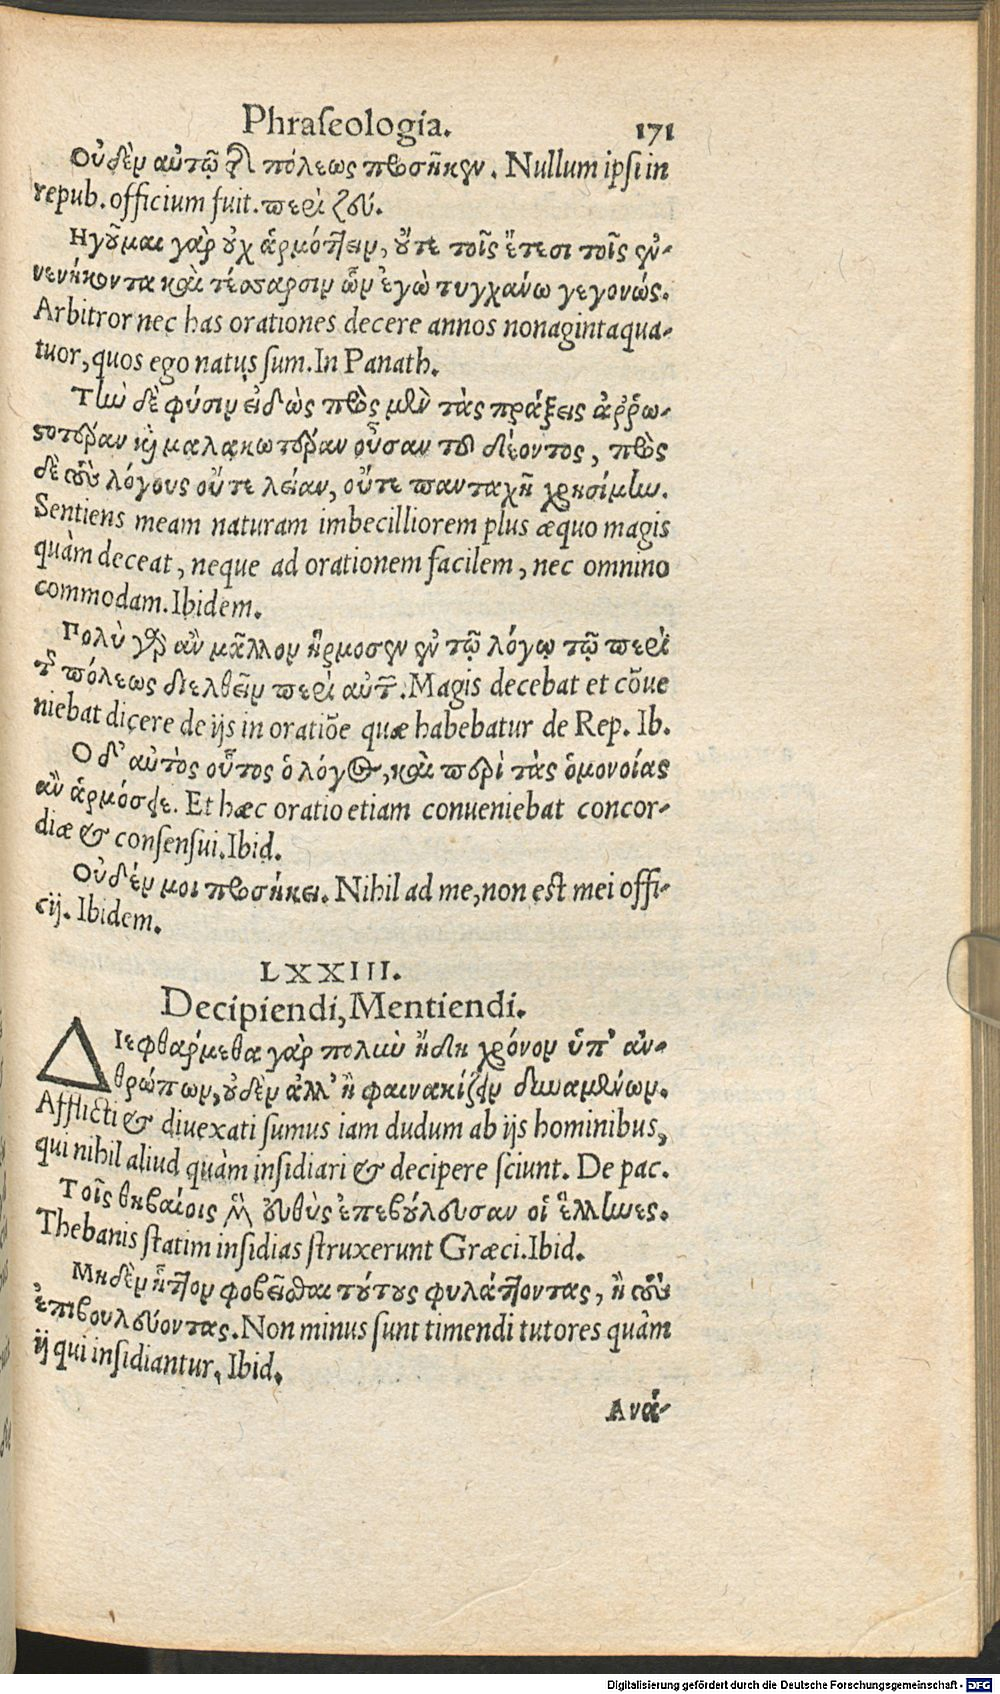 Phraſeologia. 171
Οὐδὲν αὐτῷ τῆς πόλεως προσῆκεν. Nullum ipſi in
repub. officium fuit. περὶ ζευ.
Ηγοῦμαι γὰρ οὐχ ἁρμότ]ειν, οὔτε τοῖς ἔτεσι τοῖς ἐν-
νενήκοντα καὶ τέσσαρσιν ὧν ἐγὼ τυγχάνω γεγονώς.
Arbitror nec has orationes decere annos nonagintaqua-
tuor, quos ego natus ſum. In Panath.
Τὴν δὲ φύσιν εἰδὼς πρὸς μὲν τὰς πράξεις ἀῤῥω-
στοτέραν καὶ μαλακωτέραν οὖσαν τοῦ δέοντος, πρὸς
δὲ τοὺς λόγους οὔτε λείαν, οὔτε πανταχῆ χρησίμην.
Sentiens meam naturam imbecilliorem plus æquo magis
quàm deceat, neque ad orationem facilem, nec omnino
commodam. Ibidem.
Πολὺ γὰρ ἂν μᾶλλον ἥρμοσεν ἐν τῷ λόγῳ τῷ περὶ
τῆς πόλεως διελθεῖν περὶ αὐτῶν. Magis decebat et cōue
niebat dicere de ijs in oratiōe quæ habebatur de Rep. Ib.
Ο δ' αὐτὸς οὗτος ὁ λόγος, καὶ περὶ τὰς ὁμονοίας
ἂν ἁρμόσειε. Et hæc oratio etiam conueniebat concor-
diæ & conſenſui. Ibid.
Οὐδέν μοι προσήκει. Nihil ad me, non eſt mei offi-
cij. Ibidem.
LXXIII.
Decipiendi, Mentiendi.
ΔΙεφθάρμεθα γὰρ πολὺν ἤδη χρόνον ὑπ' ἀν-
θρώπων, οὐδὲν ἀλλ' ἢ φαινακίζειν δυναμένων.
Afflicti & diuexati ſumus iam dudum ab ijs hominibus,
qui nihil aliud quàm inſidiari & decipere ſciunt. De pac.
Τοῖς θηβαίοις μὲν εὐθὺς ἐπεβούλευσαν οἱ ἕλληνες.
Thebanis ſtatim inſidias ſtruxerunt Græci. Ibid.
Μηδὲν ἧττον φοβεῖσθαι τούτους φυλάττοντας, ἢ τοὺς
ἐπιβουλεύοντας. Non minus ſunt timendi tutores quàm
ij qui inſidiantur. Ibid.
Ανά-
Digitalisierung gefördert durch die Deutsche Forschungsgemeinschaft - DFG